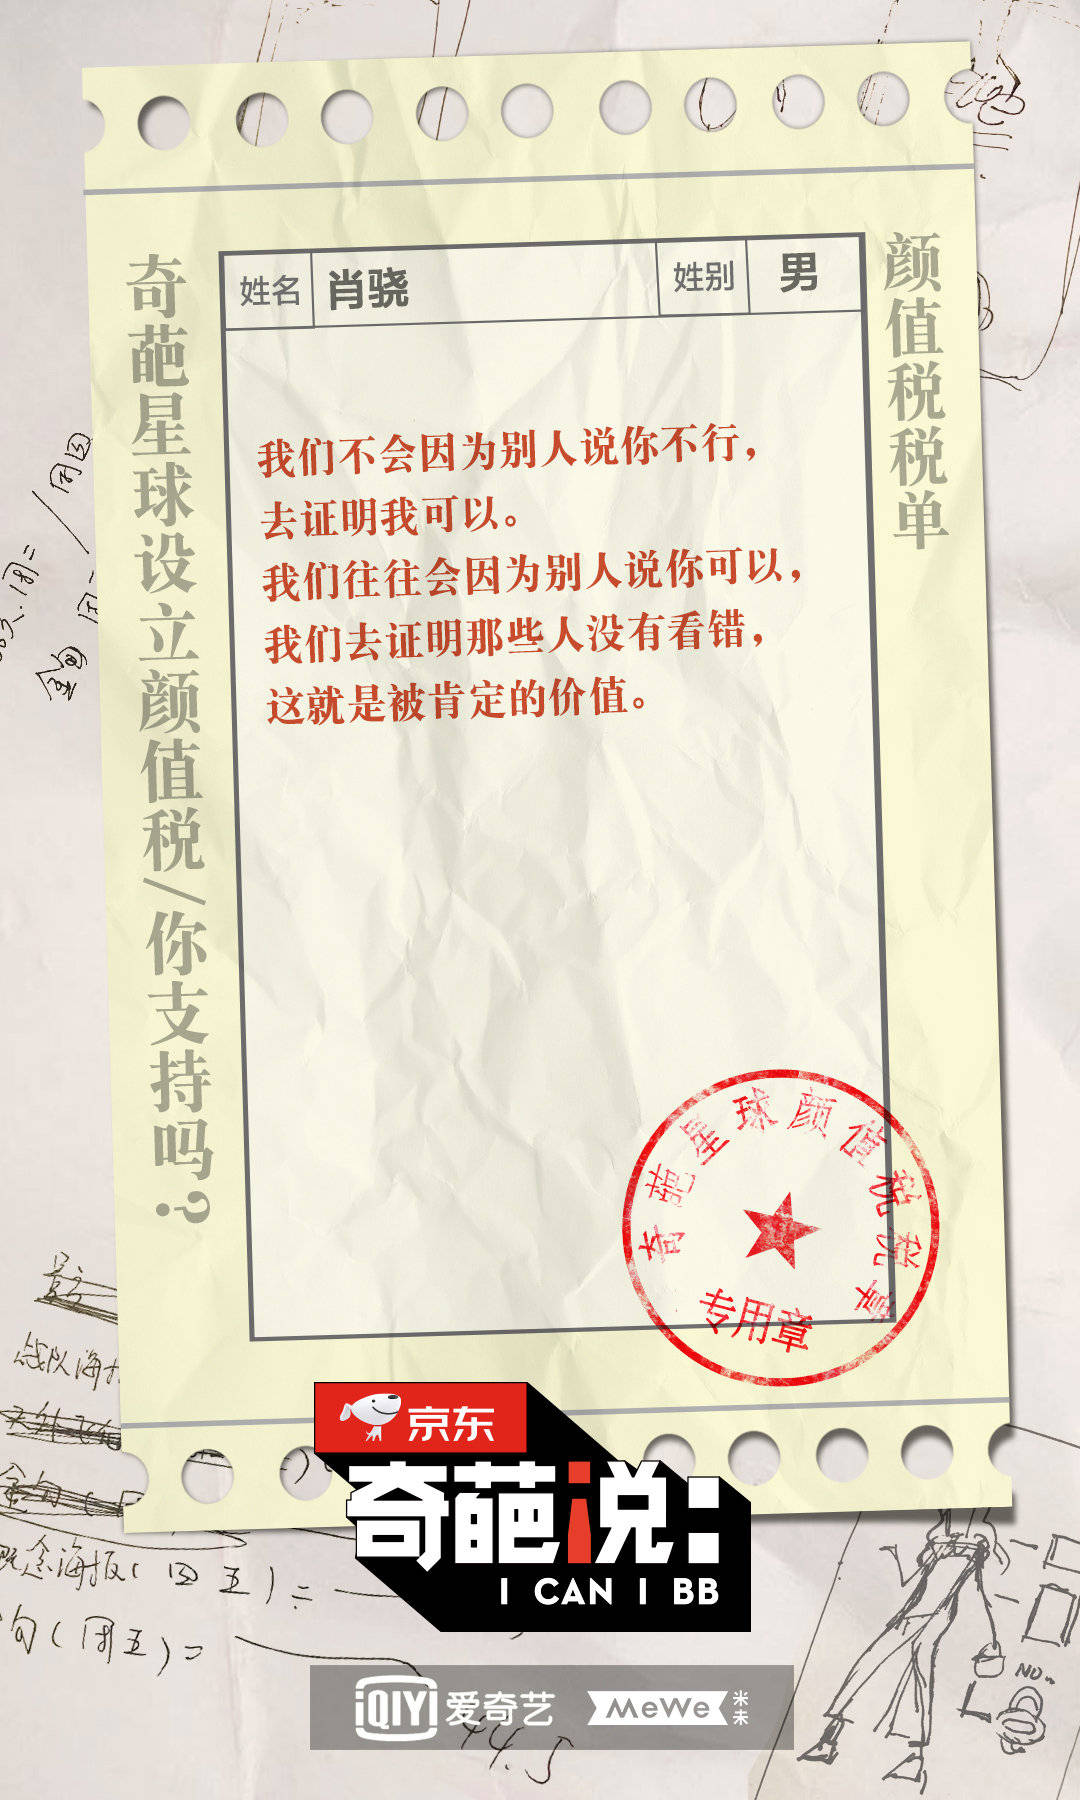 颜值税税单
奇葩星球设立颜值税/你支持吗?
姓名 肖骁 姓别 男
我们不会因为别人说你不行，
去证明我可以。
我们往往会因为别人说你可以，
我们去证明那些人没有看错，
这就是被肯定的价值。
奇葩星球颜值税税章
专用章
京东
奇葩说:
I CAN I BB
iQIYI 爱奇艺 MeWe 米未
战队海报
概念海报(团五)=
句(团五)=
44.5
NO..